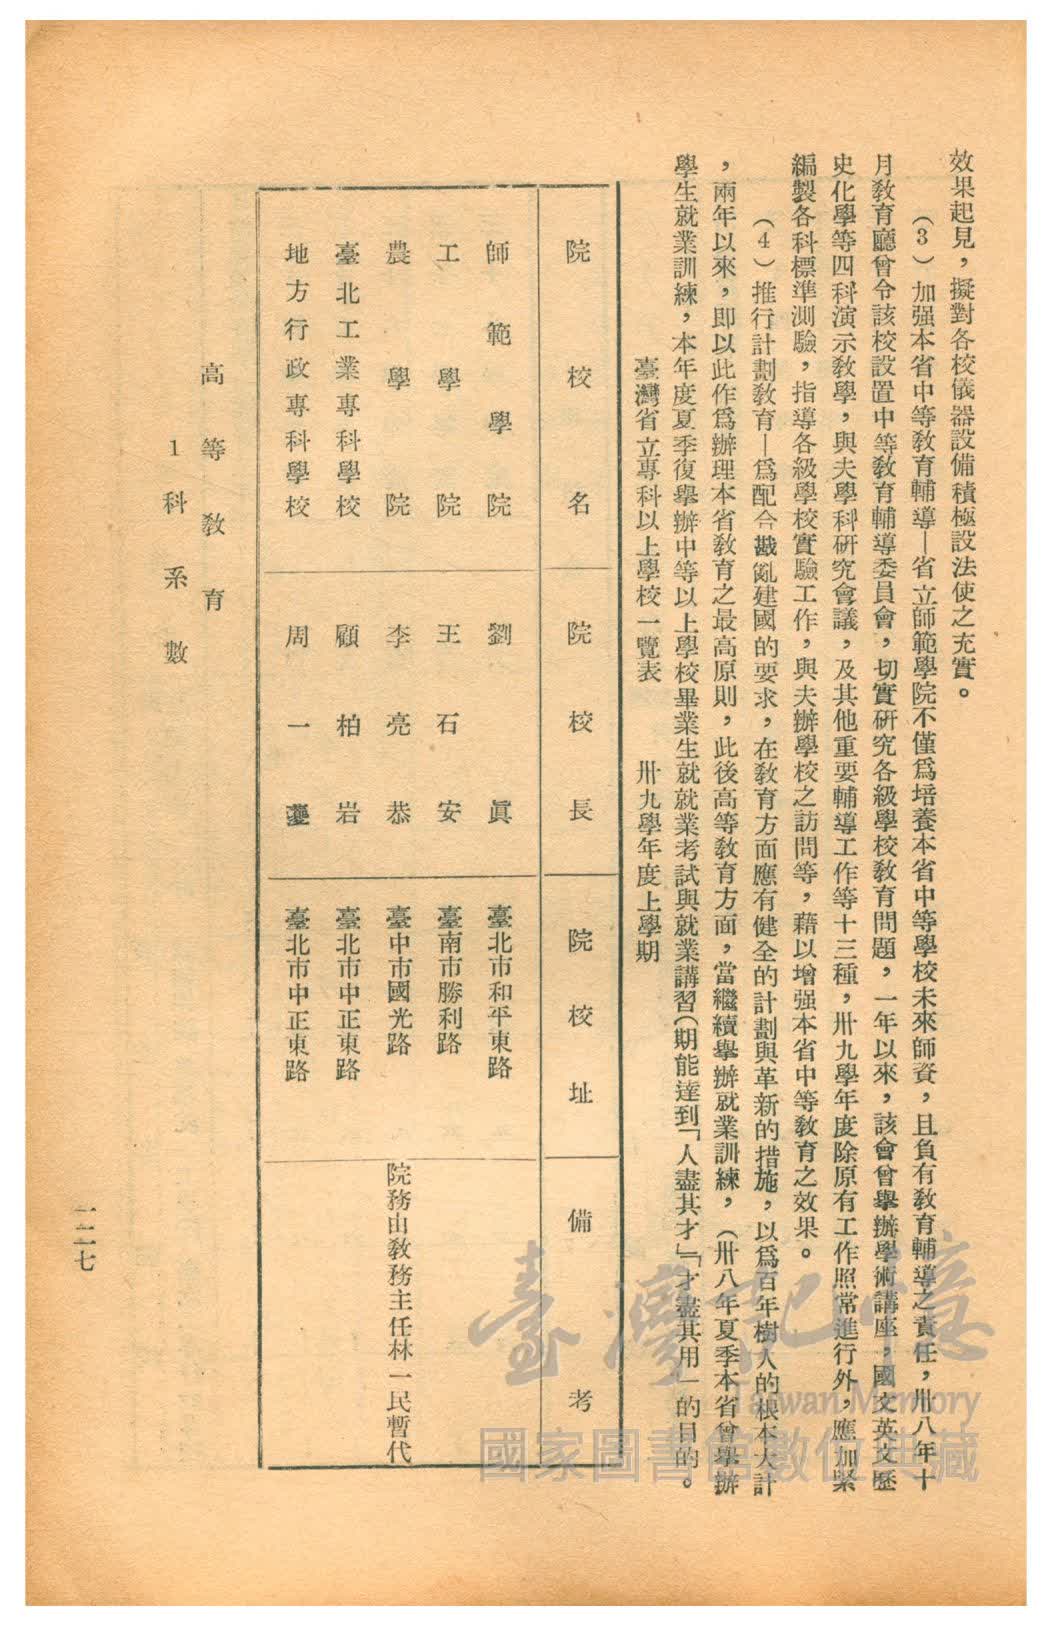 效果起見，擬對各校儀器設備積極設法使之充實。
（3）加强本省中等敎育輔導—省立師範學院不僅爲培養本省中等學校未來師資，且負有敎育輔導之責任，卅八年十
月敎育廳曾令該校設置中等敎育輔導委員會，切實研究各級學校敎育問題，一年以來，該會曾舉辦學術講座，國文英文歷
史化學等四科演示敎學，與夫學科研究會議，及其他重要輔導工作等十三種，卅九學年度除原有工作照常進行外，應加緊
編製各科標準測驗，指導各級學校實驗工作，與夫辦學校之訪問等，藉以增强本省中等敎育之效果。
（4）推行計劃敎育—爲配合戡亂建國的要求，在敎育方面應有健全的計劃與革新的措施，以爲百年樹人的根本大計
，兩年以來，即以此作爲辦理本省敎育之最高原則，此後高等敎育方面，當繼續舉辦就業訓練，（卅八年夏季本省曾舉辦
學生就業訓練，本年度夏季復舉辦中等以上學校畢業生就就業考試與就業講習（期能達到「人盡其才」「才盡其用一的目的。
臺灣省立專科以上學校一覽表　卅九學年度上學期
院校名　院校長　院校址　備考
師範學院　劉眞　臺北市和平東路
工學院　王石安　臺南市勝利路
農學院　李亮恭　臺中市國光路　院務由敎務主任林一民暫代
臺北工業專科學校　顧柏岩　臺北市中正東路
地方行政專科學校　周一夔　臺北市中正東路
高等敎育
1科系數
一二七
臺灣記憶
Taiwan Memory
國家圖書館數位典藏